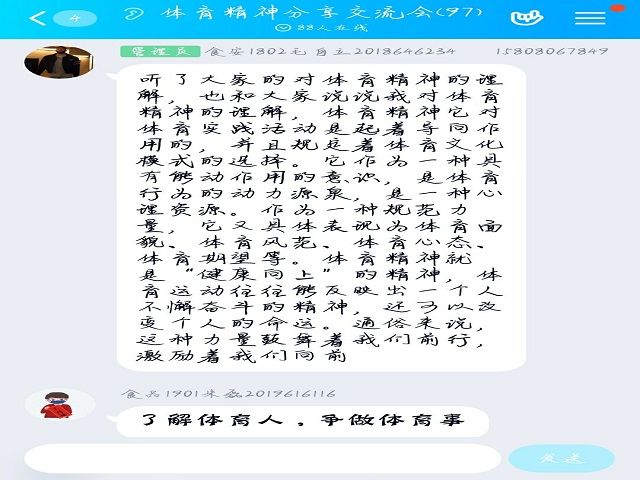 4
体育精神分享交流会(97)
88人在线
管理员 食安1802毛肖立2018646234 15808067849
听了大家的对体育精神的理
解，也和大家说说我对体育
精神的理解，体育精神它对
体育实践活动是起着导向作
用的，并且规定着体育文化
模式的选择。它作为一种具
有能动作用的意识，是体育
行为的动力源泉，是一种心
理资源。作为一种规范力
量，它又具体表现为体育面
貌、体育风范、体育心态、
体育期望等。体育精神就
是“健康向上”的精神，体
育运动往往能反映出一个人
不懈奋斗的精神，还可以改
变个人的命运。通俗来说，
这种力量鼓舞着我们前行，
激励着我们向前
食品1901朱磊2019616116
了解体育人。争做体育事
发送